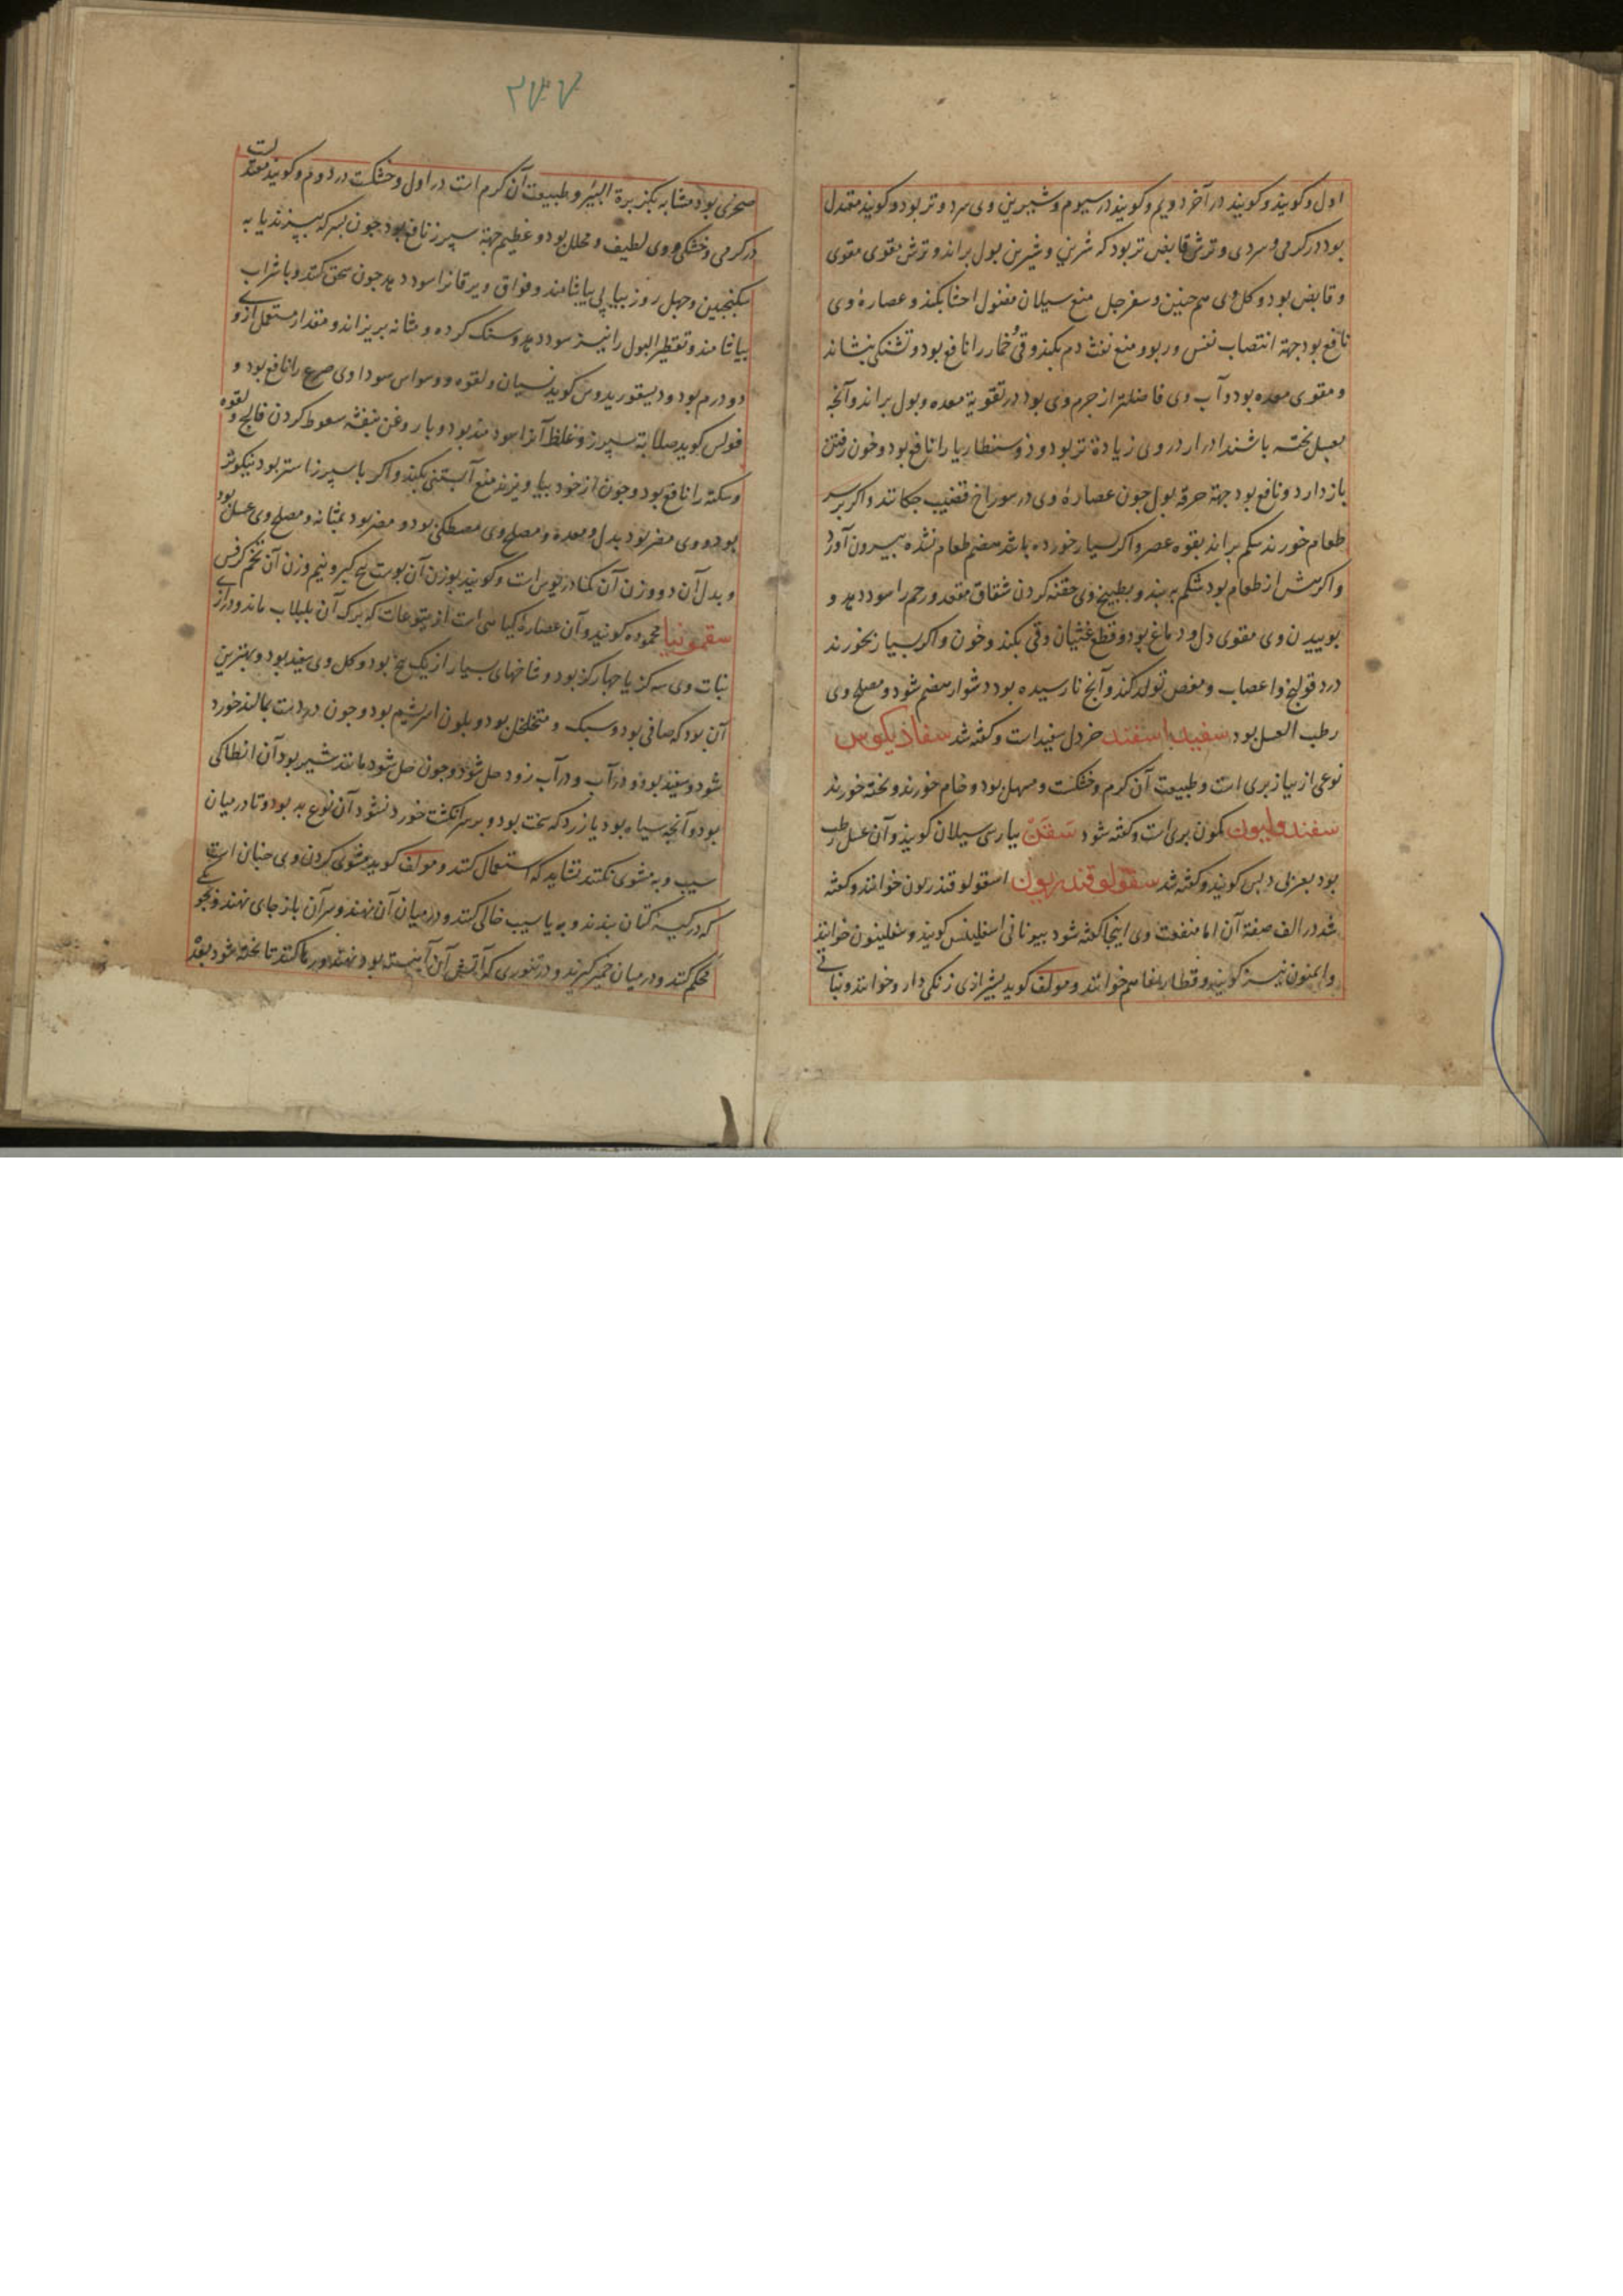 اول و کویند و کویند در آخر دویم و کویند در سیوم و شیرین وی سرد و تر بود و کویند معتدل
بود در کرمی و سردی و ترش قابض تر بود که شرین و شیرین بول براند و ترش مقوی مقوی
و قابض بود و کل وی هم جنین و سفرجل منع سیلان فضول احشا بکند و عصارهٔ وی
نافع بود جهة انتصاب نفس و ربو و منع نفث دم بکند و قی خمار را نافع بود و تشنکی بنشاند
و مقوی معده بود و آب وی فاضلتر از جرم وی بود در تقویة معده و بول براند و آنجه
بعسل بخته باشند ادرار در وی زیادة تر بود و ذوسنطاریا را نافع بود و خون رفتن
باز دارد و نافع بود جهة حرقة بول جون عصارهٔ وی در سوراخ قضیب جکانند و اکر بر سر
طعام خورند شکم براند بقوه عصر و اکر بسیار خورده باشد هضم طعام نشده بیرون آورد
و اکر بیش از طعام بود شکم ببندد و بطبیخ وی حقنه کردن شقاق مقعد و رحم را سود دهد و
بوییدن وی مقوی دل و دماغ بود و قطع غثیان و قی بکند و خون و اکر بسیار بخورند
درد قولنج و اعصاب و مغص تولد کند و آنج نارسیده بود دشوار هضم شود و مصلح وی
رطب العسل بود سفید اسفند خردل سفید است و کفته شد سفاذیکوس
نوعی از بیاز بری است و طبیعت آن کرم و خشکست و مسهل بود و خام خورند و بخته خورند
سفندولیون کمون بری است و کفته شود سقن بپارسی سیلان کویند و آن عسل رطب
بود بعربی دبس کویند و کفته شد سقولوقندریون اسقولوقندریون خوانند و کفته
شد در الف صفة آن اما منفعت وی اینجا کفته شود بیونانی اسقلینس کویند و سقلینون خوانند
و ایمنون نیز کویند و هم خوانند و مولف کوید بشیرازی زنکی دارو خوانند و نباتی
۲۴۷
صخری بود مشابه بکزبرة البئر و طبیعت آن کرم است در اول و خشکست در دوم و کویند معتدلست
در کرمی و خشکی و وی لطیف و محلل بود و عظیم جهة سپرز نافع بود جون بسرکه ببزند یا به
سکنجبین و جهل روز بیاپی بیاشامند و فواق و یرقانرا سود دهد جون سحق کنند و با شراب
بیاشامند و تقطیر البول را نیز سود دهد و سنک کرده و مثانه بریزاند و مقدار مستعمل از وی
دو درم بود و دیسقوریدوس کوید نسیان و لقوه و وسواس سوداوی صرع را نافع بود و
فولس کوید صلابة سپرز و غلظ آنرا سودمند بود و با روغن بنفشه سعوط کردن فالج و لقوه
و سکته را نافع بود و جون از خود بیاویزند منع آبستنی بکند و اکر با سپرز استر بود نیکوتر
بود و وی مضر بود بدل و معده و مصلح وی مصطکی بود و مضر بود بمثانه و مصلح وی عسل بود
و بدل آن دو وزن آن کمادریوس است و کویند بوزن آن بوست بیخ کبر و نیم وزن آن تخم کرفس
سقمونیا محموده کویند و آن عصارهٔ کیاهی است از یتوعات که برک آن بلبلاب ماند و درازی
نبات وی سه کز یا جهار کز بود و شاخهای بسیار از یک بیخ بود و کل وی سفید بود و بهترین
آن بود که صافی بود و سبک و متخلخل بود و بلون ابریشم بود و جون در دست بمالند خورد
شود و سفید بود و در آب و در آب زود حل شود و جون حل شود مانند شیر بود آن انطاکی
بود و آنجه سیاه بود یا زرد که سخت بود و بر سر انکشت خورد نشود آن نوع بد بود و تا در میان
سیب و به مشوی نکنند نشاید که استعمال کنند و مولف کوید مشوی کردن وی جنان است
که در کیسهٔ کتان بندند و به یا سیب خالی کنند و در میان آن نهند و سر آن باز جای نهند و
محکم کنند و در میان خمیر کیرند و در تنوری که آتش آن آهسته بود نهند و رها کنند تا بخته شود بعد